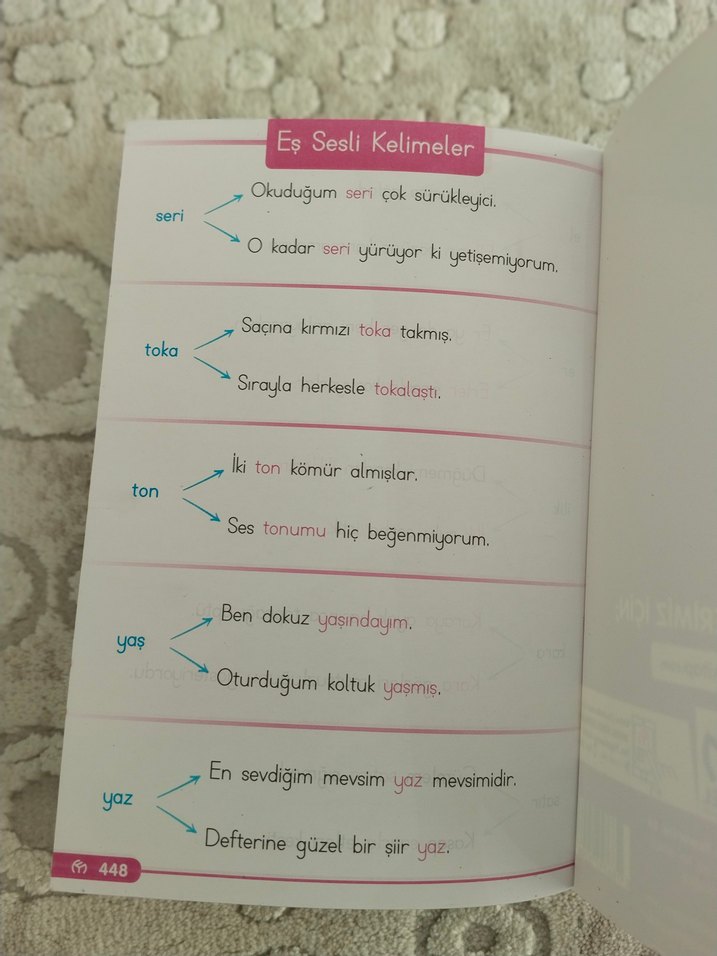 Eş Sesli Kelimeler
seri
Okuduğum seri çok sürükleyici.
O kadar seri yürüyor ki yetişemiyorum.
toka
Saçına kırmızı toka takmış.
Sırayla herkesle tokalaştı.
ton
İki ton kömür almışlar.
Ses tonumu hiç beğenmiyorum.
yaş
Ben dokuz yaşındayım.
Oturduğum koltuk yaşmış.
yaz
En sevdiğim mevsim yaz mevsimidir.
Defterine güzel bir şiir yaz.
448